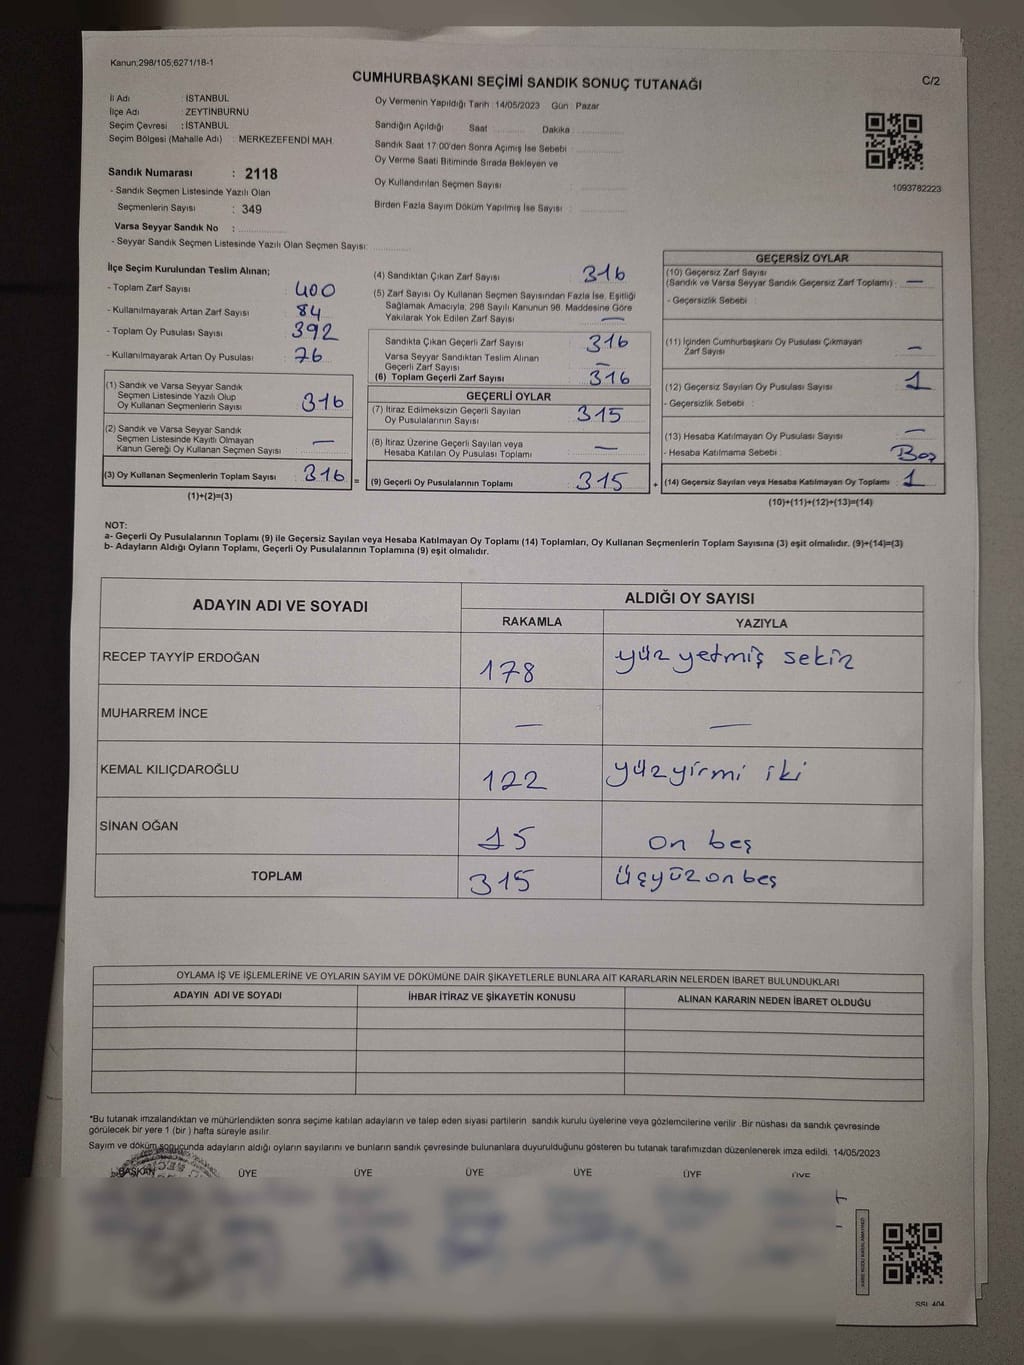 Kanun:298/105;6271/18-1
CUMHURBAŞKANI SEÇİMİ SANDIK SONUÇ TUTANAĞI
C/2
İl Adı : İSTANBUL
İlçe Adı : ZEYTİNBURNU
Seçim Çevresi : İSTANBUL
Seçim Bölgesi (Mahalle Adı) : MERKEZEFENDİ MAH.
Sandık Numarası : 2118
- Sandık Seçmen Listesinde Yazılı Olan
Seçmenlerin Sayısı : 349
Varsa Seyyar Sandık No :
- Seyyar Sandık Seçmen Listesinde Yazılı Olan Seçmen Sayısı:
Oy Vermenin Yapıldığı Tarih :14/05/2023 Gün : Pazar
Sandığın Açıldığı Saat Dakika
Sandık Saat 17:00'den Sonra Açımış İse Sebebi :
Oy Verme Saati Bitiminde Sırada Bekleyen ve
Oy Kullandırılan Seçmen Sayısı :
Birden Fazla Sayım Döküm Yapılmış İse Sayısı :
1093782223
İlçe Seçim Kurulundan Teslim Alınan;
- Toplam Zarf Sayısı : 400
- Kullanılmayarak Artan Zarf Sayısı : 84
- Toplam Oy Pusulası Sayısı : 392
- Kullanılmayarak Artan Oy Pusulası : 76
(1) Sandık ve Varsa Seyyar Sandık
Seçmen Listesinde Yazılı Olup
Oy Kullanan Seçmenlerin Sayısı : 316
(2) Sandık ve Varsa Seyyar Sandık
Seçmen Listesinde Kayıtlı Olmayan
Kanun Gereği Oy Kullanan Seçmen Sayısı : —
(3) Oy Kullanan Seçmenlerin Toplam Sayısı : 316 =
(1)+(2)=(3)
(4) Sandıktan Çıkan Zarf Sayısı : 316
(5) Zarf Sayısı Oy Kullanan Seçmen Sayısından Fazla İse, Eşitliği
Sağlamak Amacıyla, 298 Sayılı Kanunun 98. Maddesine Göre
Yakılarak Yok Edilen Zarf Sayısı : —
Sandıkta Çıkan Geçerli Zarf Sayısı : 316
Varsa Seyyar Sandıktan Teslim Alınan
Geçerli Zarf Sayısı : —
(6) Toplam Geçerli Zarf Sayısı : 316
GEÇERLİ OYLAR
(7) İtiraz Edilmeksizin Geçerli Sayılan
Oy Pusulalarının Sayısı : 315
(8) İtiraz Üzerine Geçerli Sayılan veya
Hesaba Katılan Oy Pusulası Toplamı : —
(9) Geçerli Oy Pusulalarının Toplamı : 315 +
GEÇERSİZ OYLAR
(10) Geçersiz Zarf Sayısı
(Sandık ve Varsa Seyyar Sandık Geçersiz Zarf Toplamı) : —
- Geçersizlik Sebebi :
(11) İçinden Cumhurbaşkanı Oy Pusulası Çıkmayan
Zarf Sayısı : —
(12) Geçersiz Sayılan Oy Pusulası Sayısı : 1
- Geçersizlik Sebebi :
(13) Hesaba Katılmayan Oy Pusulası Sayısı : —
- Hesaba Katılmama Sebebi : Boş
(14) Geçersiz Sayılan veya Hesaba Katılmayan Oy Toplamı : 1
(10)+(11)+(12)+(13)=(14)
NOT:
a- Geçerli Oy Pusulalarının Toplamı (9) ile Geçersiz Sayılan veya Hesaba Katılmayan Oy Toplamı (14) Toplamları, Oy Kullanan Seçmenlerin Toplam Sayısına (3) eşit olmalıdır. (9)+(14)=(3)
b- Adayların Aldığı Oyların Toplamı, Geçerli Oy Pusulalarının Toplamına (9) eşit olmalıdır.
ADAYIN ADI VE SOYADI
ALDIĞI OY SAYISI
RAKAMLA YAZIYLA
RECEP TAYYİP ERDOĞAN 178 yüz yetmiş sekiz
MUHARREM İNCE — —
KEMAL KILIÇDAROĞLU 122 yüzyirmi iki
SİNAN OĞAN 15 on beş
TOPLAM 315 üçyüzonbeş
OYLAMA İŞ VE İŞLEMLERİNE VE OYLARIN SAYIM VE DÖKÜMÜNE DAİR ŞİKAYETLERLE BUNLARA AİT KARARLARIN NELERDEN İBARET BULUNDUKLARI
ADAYIN ADI VE SOYADI İHBAR İTİRAZ VE ŞİKAYETİN KONUSU ALINAN KARARIN NEDEN İBARET OLDUĞU
*Bu tutanak imzalandıktan ve mühürlendikten sonra seçime katılan adayların ve talep eden siyasi partilerin sandık kurulu üyelerine veya gözlemcilerine verilir .Bir nüshası da sandık çevresinde
görülecek bir yere 1 (bir ) hafta süreyle asılır.
Sayım ve döküm sonucunda adayların aldığı oyların sayılarını ve bunların sandık çevresinde bulunanlara duyurulduğunu gösteren bu tutanak tarafımızdan düzenlenerek imza edildi. 14/05/2023
BAŞKAN ÜYE ÜYE ÜYE ÜYE ÜYE ÜYE